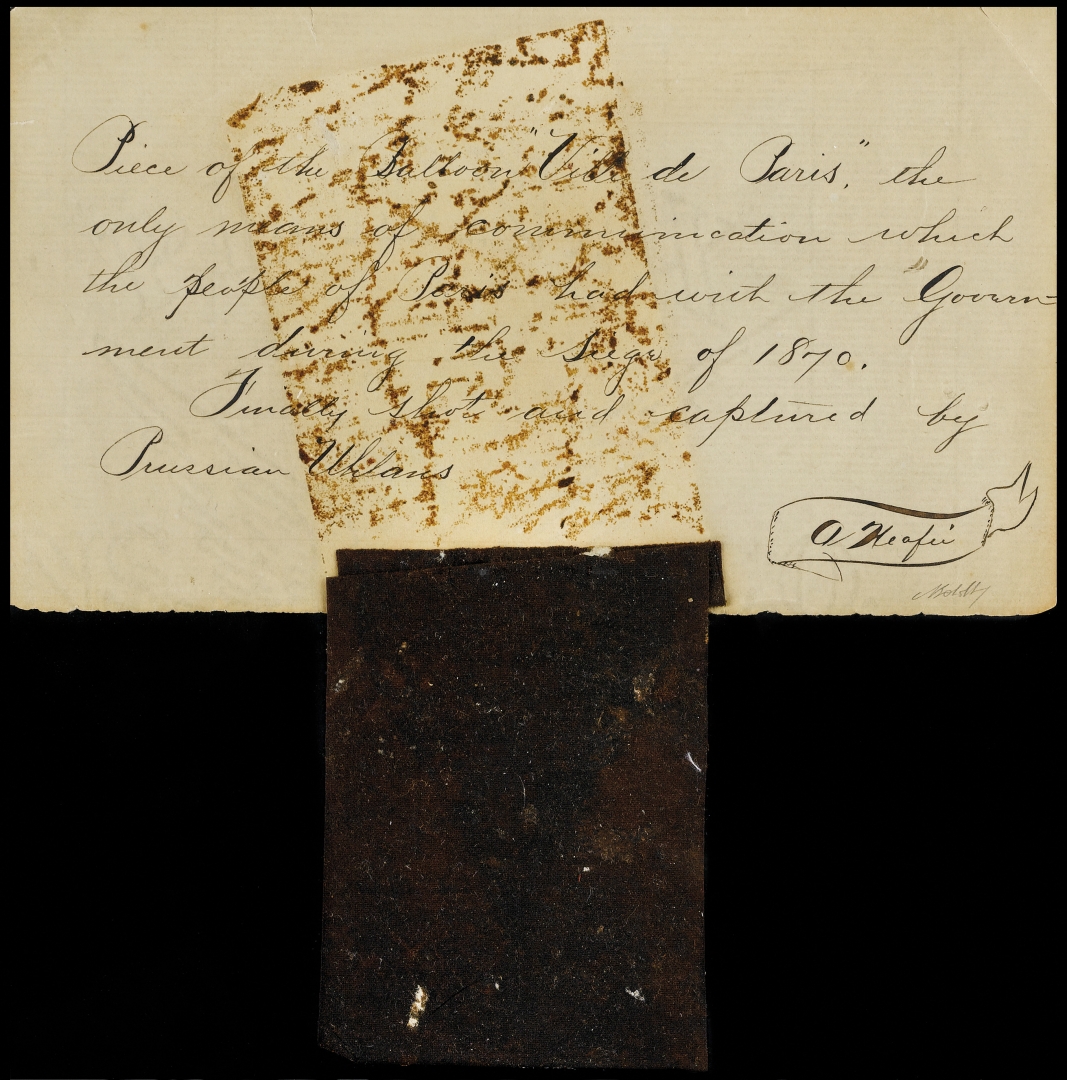 Piece of the Balloon "Ville de Paris", the
only means of communication which
the people of Paris had with the "Govern-
ment during the Siege of 1870.
Finally shot and captured by
Prussian Uhlans
A